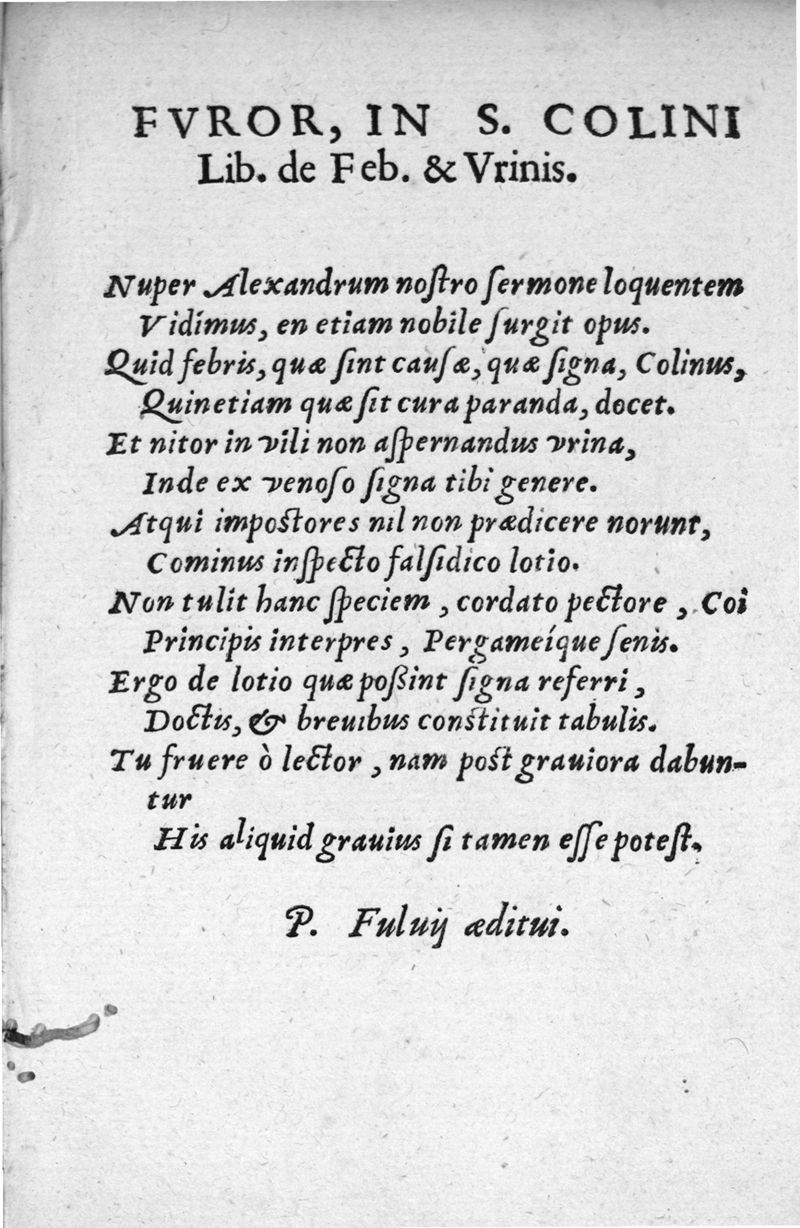 FVROR, IN S. COLINI
Lib. de Feb. & Vrinis.
Nuper Alexandrum noſtro ſermone loquentem
Vidimus, en etiam nobile ſurgit opus.
Quid febris, quæ ſint cauſæ, quæ ſigna, Colinus,
Quinetiam quæ ſit cura paranda, docet.
Et nitor in vili non aſpernandus vrina,
Inde ex venoſo ſigna tibi genere.
Atqui impoſtores nil non prædicere norunt,
Cominus inſpecto falſidico lotio.
Non tulit hanc ſpeciem, cordato pectore, Coi
Principis interpres, Pergameíque ſenis.
Ergo de lotio quæ poßint ſigna referri,
Doctis, & breuibus conſtituit tabulis.
Tu fruere ò lector, nam poſt grauiora dabun-
tur
His aliquid grauius ſi tamen eſſe poteſt.
P. Fuluij æditui.